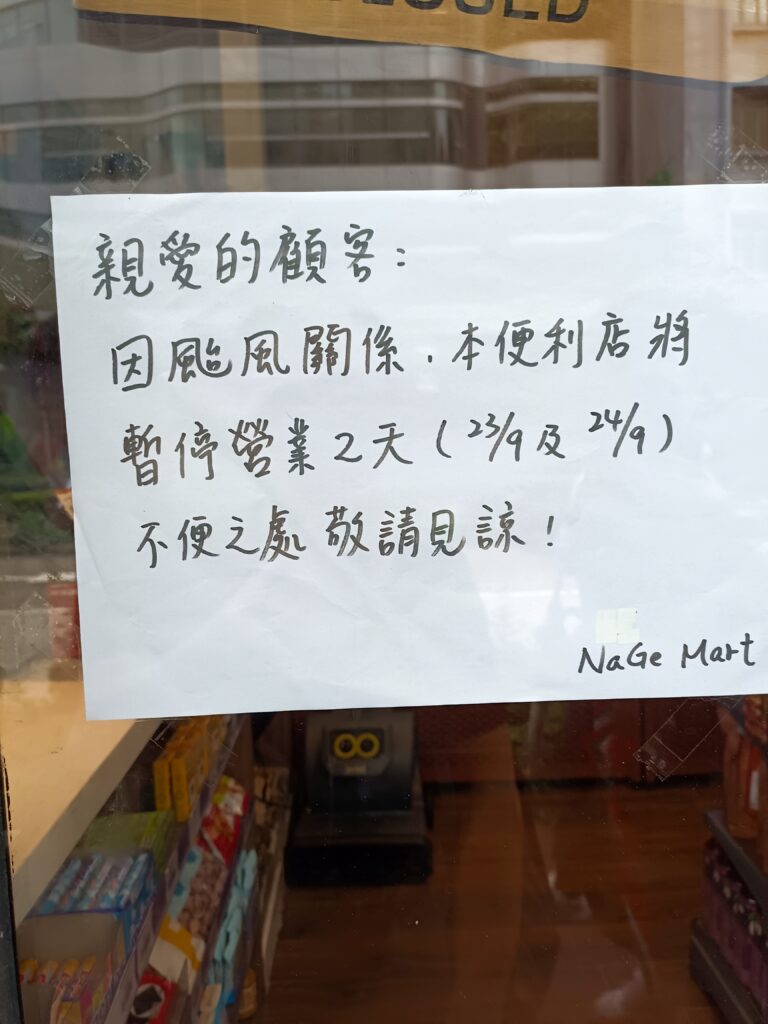 CLOSED
親愛的顧客：
因颱風關係，本便利店將
暫停營業2天（23/9及 24/9）
不便之處 敬請見諒！
NaGe Mart